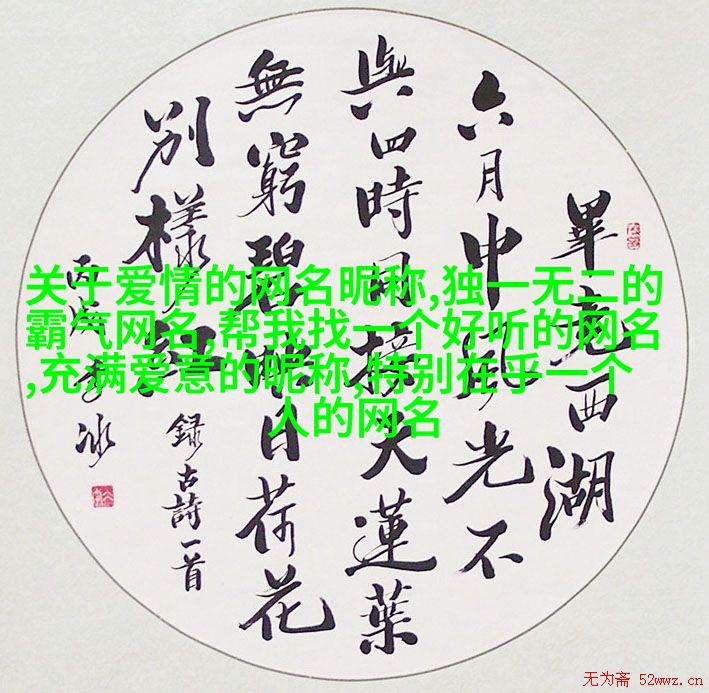 畢竟西湖
六月中風光不
與四時同接天蓮葉
無窮碧映日荷花
別樣紅
錄古詩一首
丙冰
关于爱情的网名昵称,独一无二的
霸气网名,帮我找一个好听的网名
,充满爱意的昵称,特别在乎一个
人的网名
无为斋 52wwz.cn